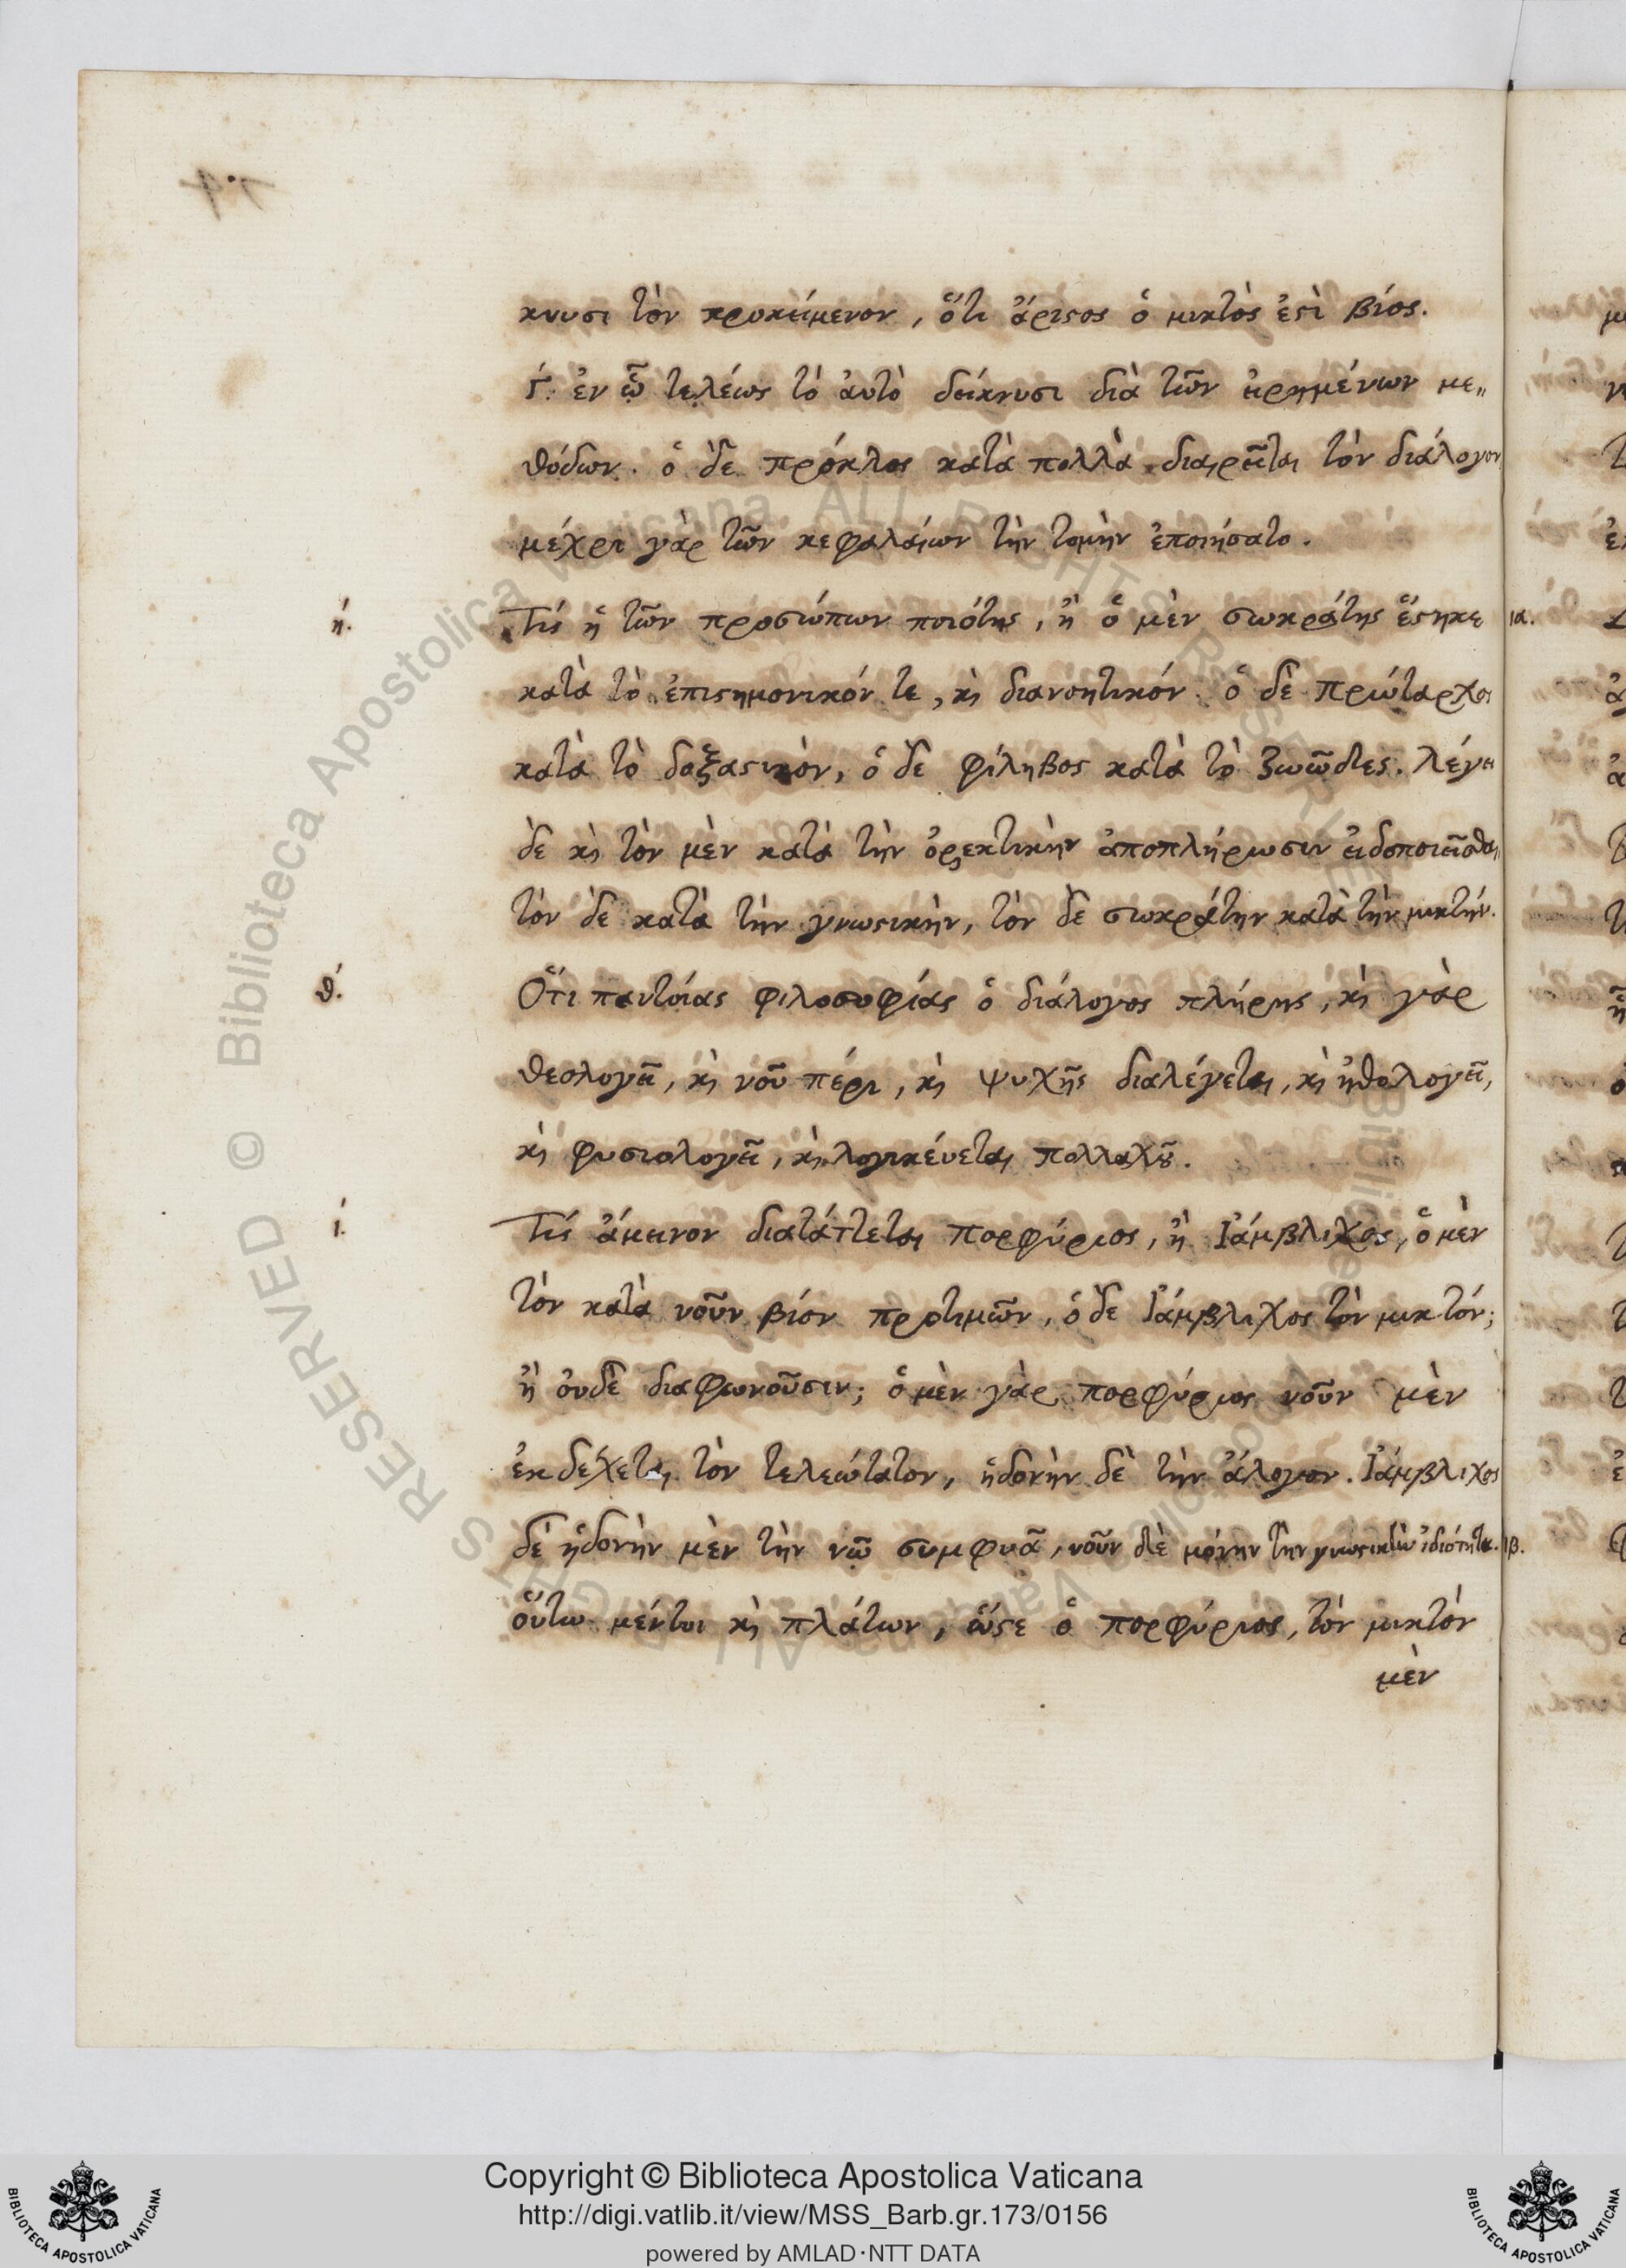 κνυσι τὸν προκείμενον, ὅτι ἄριϛος ὁ μικτὸς ἐϛὶ βίος.
Γ΄. ἐν ᾧ τελέως τὸ ἀυτὸ δείκνυσι διὰ τῶν εἰρημένων με„
θόδων. ὁ δὲ πρόκλος κατὰ πολλὰ διαιρεῖται τὸν διάλογον
μέχρι γὰρ τῶν κεφαλαίων τὴν τομὴν ἐποιήσατο.
ή. Τίς ἡ τῶν προσώπων ποιότης, ἢ ὁ μὲν σωκράτης ἕϛηκε
κατὰ τὸ ἐπιϛημονικόν τε, κὶ διανοητικόν. ὁ δὲ πρώταρχος
κατὰ τὸ δοξαϛικὸν, ὁ δὲ φίληβος κατὰ τὸ ζωῶδες. λέγει
δὲ κὶ τὸν μὲν κατὰ τὴν ὀρεκτικὴν ἀποπλήρωσιν εἰδοποιεῖσθαι,
τὸν δὲ κατὰ τὴν γνωϛικὴν, τὸν δὲ σωκράτην κατὰ τὴν μικτήν.
θ΄. Ὅτι παντοίας φιλοσοφίας ὁ διάλογος πλήρης, κὶ γὰρ
θεολογεῖ, κὶ νοῦ πέρι, κὶ ψυχῆς διαλέγεται, κὶ ἠθολογεῖ,
κὶ φυσιολογεῖ, κὶ λογικέυεται πολλαχοῦ.
ί. Τίς ἄμεινον διατάττεται πορφύριος, ἢ Ἰάμβλιχος, ὁ μὲν
τὸν κατὰ νοῦν βίον προτιμῶν, ὁ δὲ Ἰάμβλιχος τὸν μικτόν;
ἢ ὀυδὲ διαφωνοῦσιν; ὁ μὲν γὰρ πορφύριος νοῦν μὲν
ἐκδέχεται τὸν τελεώτατον, ἡδονὴν δὲ τὴν ἄλογον. Ἰάμβλιχος
δὲ ἡδονὴν μὲν τὴν νῷ συμφυᾶ, νοῦν δὲ μόνην τὴν γνωϛικὴν ἰδιότητα.
ὅυτω μέντοι κὶ πλάτων, ὥϛε ὁ πορφύριος, τὸν μικτὸν
μὲν
ια.
ιβ.
Copyright © Biblioteca Apostolica Vaticana
http://digi.vatlib.it/view/MSS_Barb.gr.173/0156
powered by AMLAD·NTT DATA
BIBLIOTECA APOSTOLICA VATICANA
BIBLIOTECA APOSTOLICA VATICANA